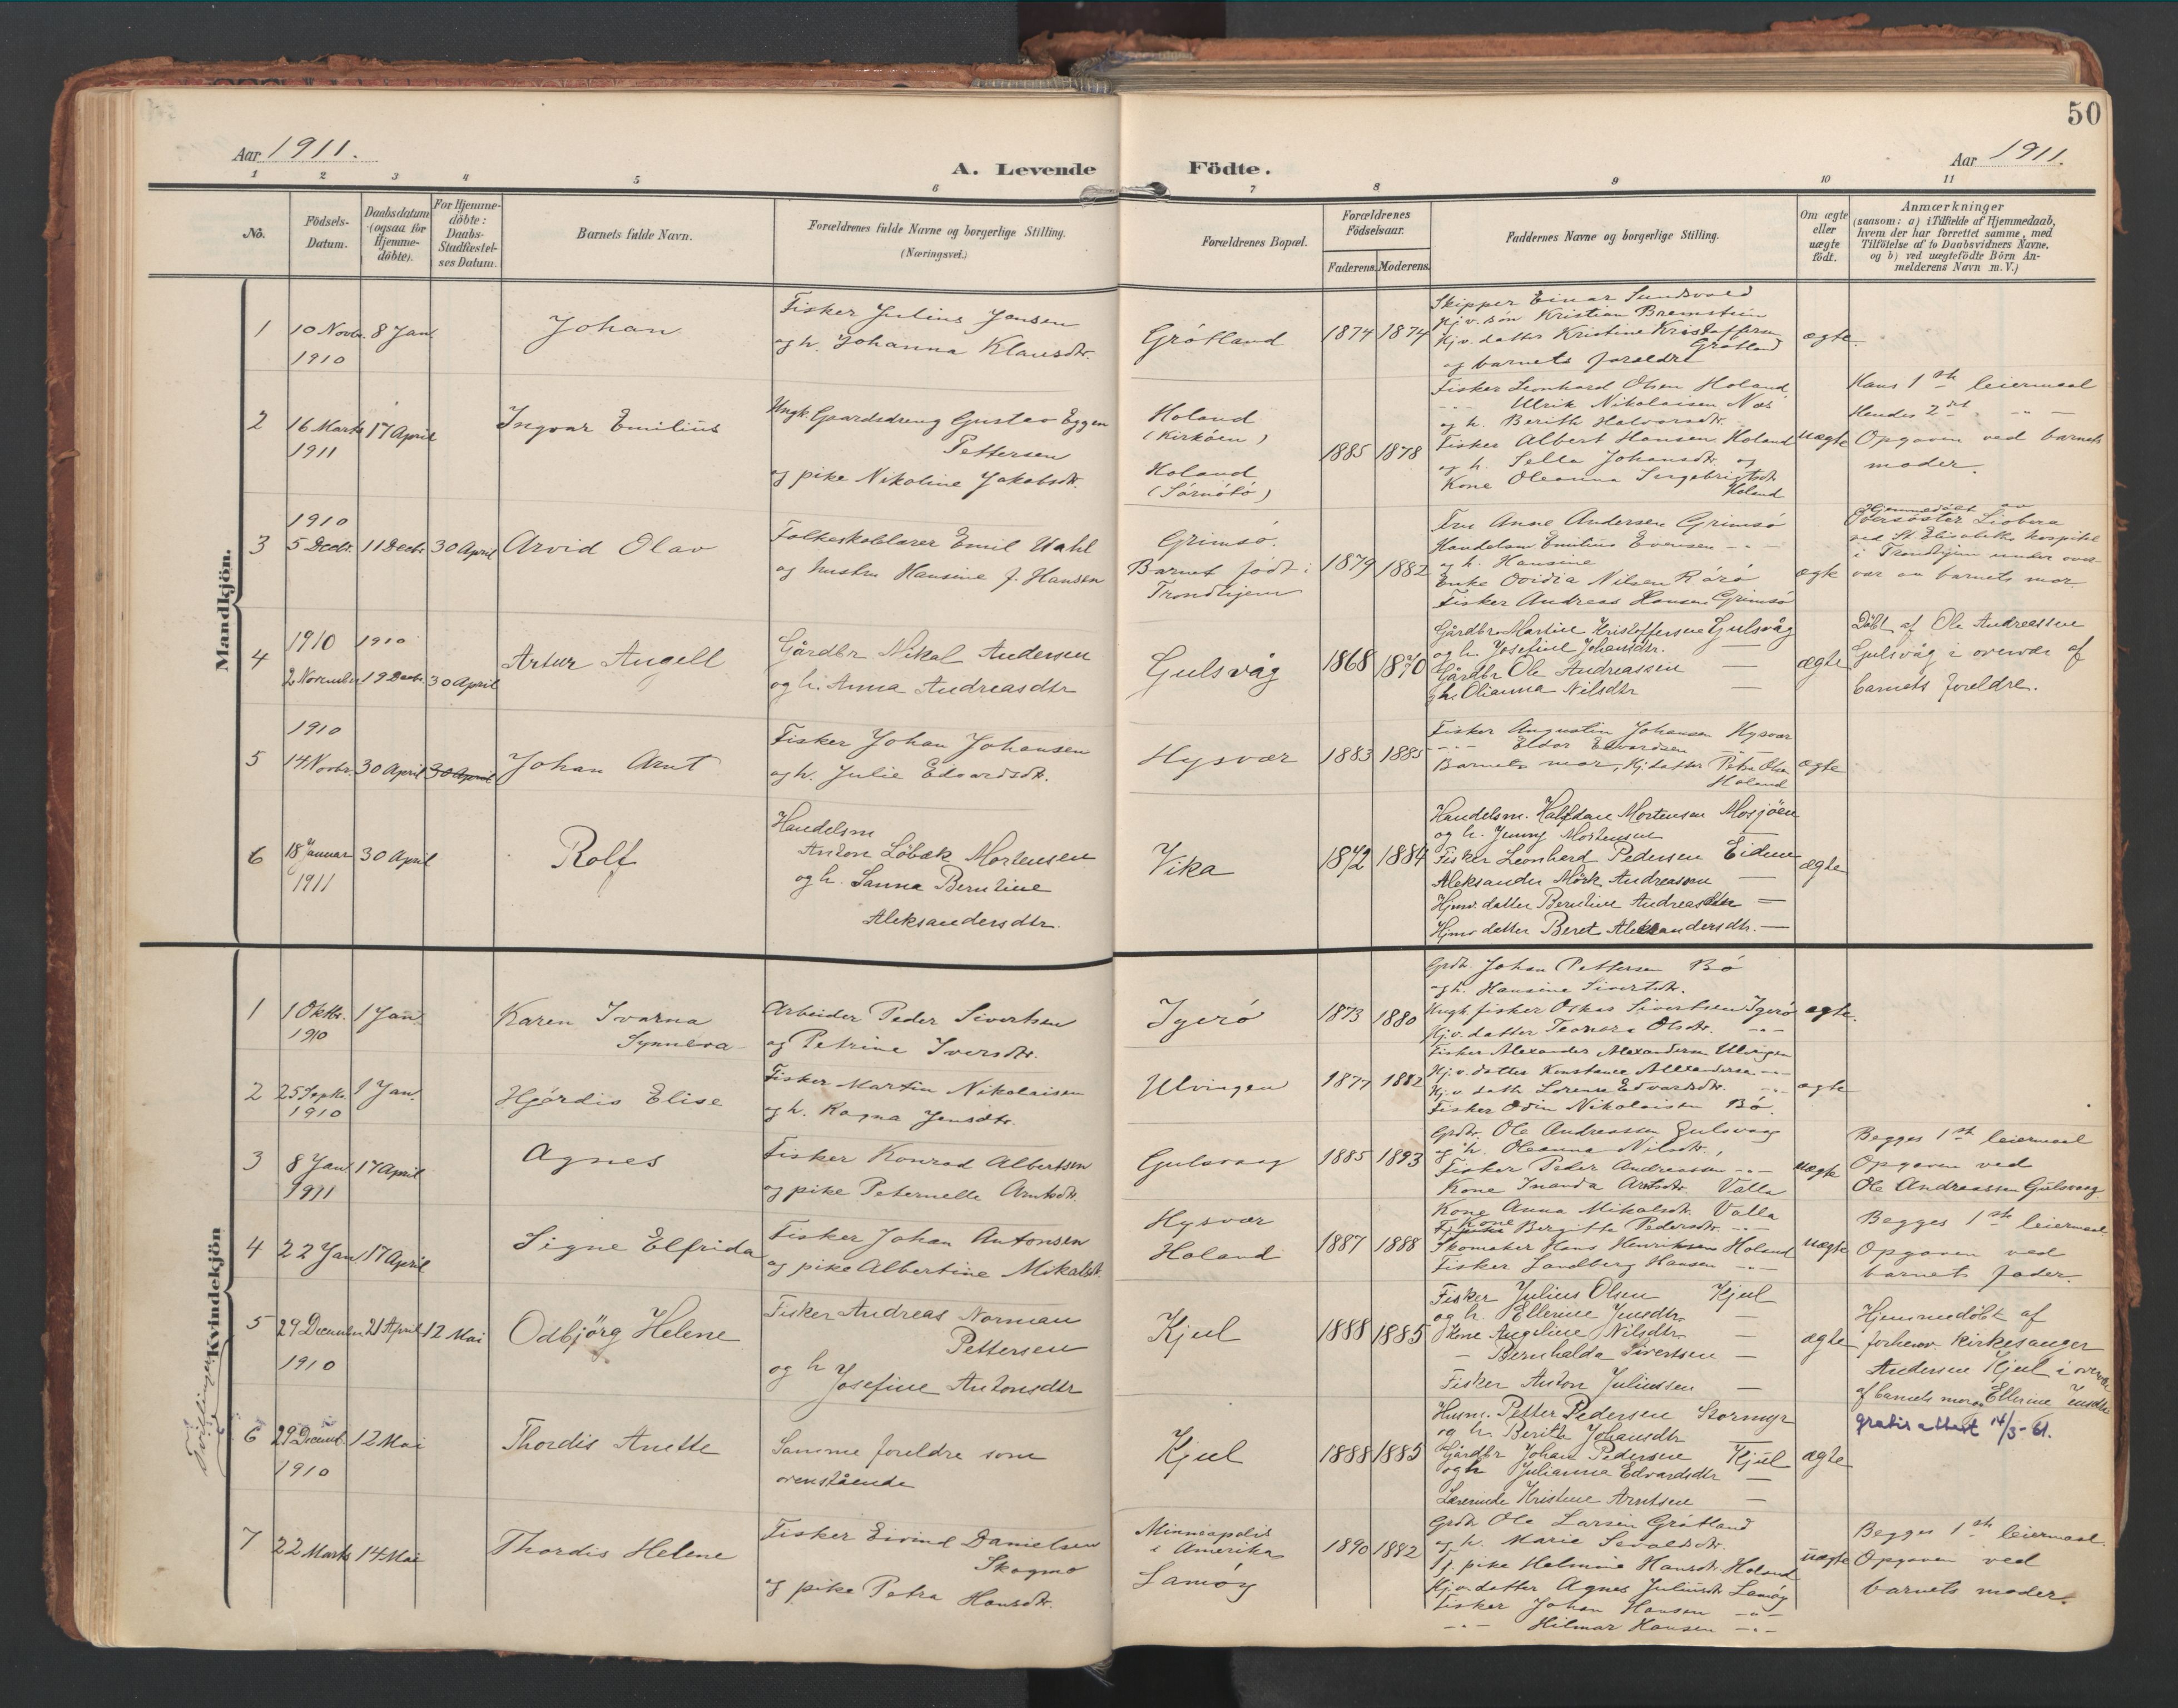 50
Aar 1911.
A. Levende Födte.
Aar 1911.
1 2 3 4 5 6 7 8 9 10 11
No.
Födsels-Datum.
Daabsdatum (ogsaa for Hjemme-döbte).
For Hjemme-döbte: Daabs-Stadfæstel-ses Datum.
Barnets fulde Navn.
Forældrenes fulde Navne og borgerlige Stilling.
(Næringsvei.)
Forældrenes Bopæl.
Forældrenes Födselsaar.
Faderens. Moderens.
Faddernes Navne og borgerlige Stilling.
Om ægte eller uægte födt.
Anmærkninger
(saasom: a) i Tilfælde af Hjemmedaab, hvem der har forrettet samme, med Tilföielse af to Daabsvidners Navne, og b) ved uægtefödte Börn An-melderens Navn m. V.)
Mandkjön.
1
10 Novbr. 1910
8 Jan.
Johan
Fisker Julius Jensen
og h. Johanna Klausdtr.
Grótland
1874 1874
Skipper Einar Sundsvold
Hjv. sön Kristian Bremstein
Hjv. datter Kristine Kristoffersen
Grótland
og barnets foreldre
ægte.
2
16 Marts 1911
17 April
Ingvar Emilius
Ungk. Gaardsdreng Gustav Eggen
Pettersen
og pike Nikoline Jakobsdtr.
Holand
(Kirköen)
Holand
(Sörnótó)
1885 1878
Fisker Leonhard Olsen Holand
-"- Ulrik Nikolaisen Nes
og h. Berith Halvorsdtr.
Fisker Albert Hansen Holand
og h. Sella Johansdtr. og
Kone Oleanna Ingebrigtsdtr.
Holand
uægte
Hans 1ste leiermaal
Hendes 2det -"-
Opgaven ved barnets
moder.
3
1910
5 Decbr.
11 Decbr.
30 April
Arvid Olav
Folkeskolelærer Emil Wahl
og hustru Hansine J. Hansen
Grimsó.
Barnet födt i
Trondhjem
1879 1882
Fru Anne Andersen Grimsó
Handelsm. Emilius Evensen -"-
og h. Hansine
Enke Ovidia Nilsen Róró
Fisker Andreas Hansen Grimsó
ægte
Hjemmedöbt av
Oversöster Liobera
ved St. Elisabeths hospital
i Trondhjem under over-
vær av barnets mor
4
1910
2 November
1910
19 Decbr.
30 April
Artur Angell
Gårdbr Nikal Andersen
og h. Anna Andreasdtr
Gulsvåg
1868 1870
Gårdbr Martin Kristoffersen Gulsvåg
og h. Josefine Johansdtr.
Gårdbr Ole Andreassen —
og h. Olianna Nilsdtr —
ægte
Döbt af Ole Andreassen
Gulsvåg i overvær af
barnets foreldre.
5
1910
14 Novbr.
30 April
30 April
Johan Arnt
Fisker Johan Johansen
og h. Julie Edvardsdtr.
Hysvær
1883 1885
Fisker Augustin Johansen Hysvær
-"- Eldor Edvardsen
Barnets mor, Hj. datter Petra Olsen
Holand
ægte
6
18 Januar 1911
30 April
Rolf
Handelsm
Anton Löbæk Mortensen
og h. Sanna Berntine
Aleksandersdtr.
Vika
1872 1884
Handelsm. Halfdan Mortensen Mosjöen
og h. Jenny Mortensen —
Fisker Leonhard Pedersen Eidem
Aleksander Mörk Andreassen —
Hjmv. datter Berntine Andreasdtr —
Hjmv datter Beret Aleksandersdtr. —
ægte
Kvindekjön
1
1 Oktbr. 1910
1 Jan.
Karen Ivarna
Synneva
Arbeider Peder Sivertsen
og Petrine Iversdtr.
Igeró
1873 1880
Grdb. Johan Pettersen Bó
og h. Hansine Sivertsdtr.
Ungk. fisker Oskar Sivertsen Igeró
Hjv. datter Teanora Olsdtr. -"-
ægte.
2
25 Septbr. 1910
1 Jan.
Hjórdis Elise
Fisker Martin Nikolaisen
og h. Ragna Jensdtr.
Ulvingen
1877 1882
Fisker Alexander Alexandersen Ulvingen
Hjv. datter Konstance Alexandersen -"-
Hjv. datter Lorense Edvardsdtr. -"-
Fisker Odin Nikolaisen Bó.
ægte
3
8 Jan 1911
17 April
Agnes
Fisker Konrad Albertsen
og pike Peternelle Arntsdtr.
Gulsvaag
1885 1893
Grdb. Ole Andreassen Gulsvaag
og h. Oleanna Nilsdtr.,
Fisker Peder Andreassen -"-
Kone Inanda Arntsdtr. Valla
uægte
Begges 1ste leiermaal
Opgaven ved
Ole Andreassen Gulsvaag
4
22 Jan
17 April
Signe Elfrida
Fisker Johan Antonsen
og pike Albertine Mikalsdtr.
Hysvær
Holand
1887 1888
Kone Anna Mikalsdtr. Valla
Kone Bergitte Pedersdtr. -"-
Skomaker Hans Henriksen Holand
Fisker Sandberg Hansen -"-
uægte
Begges 1ste leiermaal
Opgaven ved
barnets fader.
5
29 December 1910
21 April
12 Mai
Odbjörg Helene
Fisker Andreas Norman
Pettersen
og h Josefine Antonsdtr
Kjul
1888 1885
Fisker Julius Olsen Kjul
og h. Ellerine Jensdtr —
Kone Angeline Nilsdtr —
— Bernhalda Sivertsen —
Fisker Anton Juliussen —
ægte
Hjemmedöbt af
forhenv. Kirkesanger
Andersen Kjul i overvær
af barnets mor og Ellerine Jensdtr
gratis attest 14/3-61.
Tvillinger
6
29 Decemb. 1910
12 Mai
Thordis Anette
Samme foreldre som
ovenstående
Kjul
1888 1885
Husm. Petter Pedersen Stormyr
og h. Berith Johansdtr
Gårdbr Johan Pedersen Kjul
og h Julianna Edvardsdtr —
Lærerinde Kristine Arntsen —
ægte
7
22 Marts
14 Mai
Thordis Helene
Fisker Eivind Danielsen
Skogmo
og pike Petra Hansdtr.
Minneapolis
i Amerika
Lamóy
1890 1892
Grdb Ole Larsen Grótland
og h. Marie Sevaldsdtr.
Tj. pike Helmine Hansdtr. Holand
Hjv. datter Agnes Juliusdtr. Lamóy
Fisker Johan Hansen -"-
-"- Hilmar Hansen -"-
uægte
Begges 1ste leiermaal.
Opgaven ved
barnets moder.